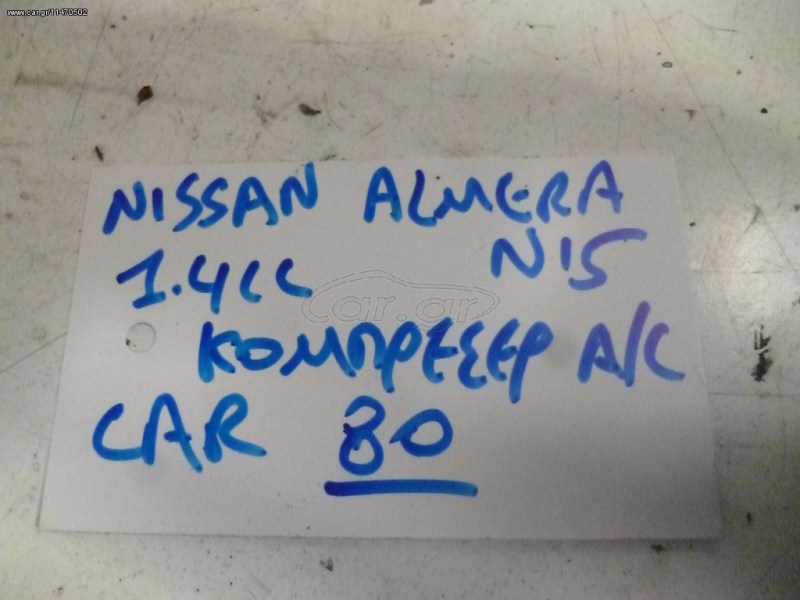 www.car.gr/11470502
NISSAN ALMERA
1.4cc N15
car.gr
ΚΟΜΠΡΕΣΕΡ A/C
CAR 80